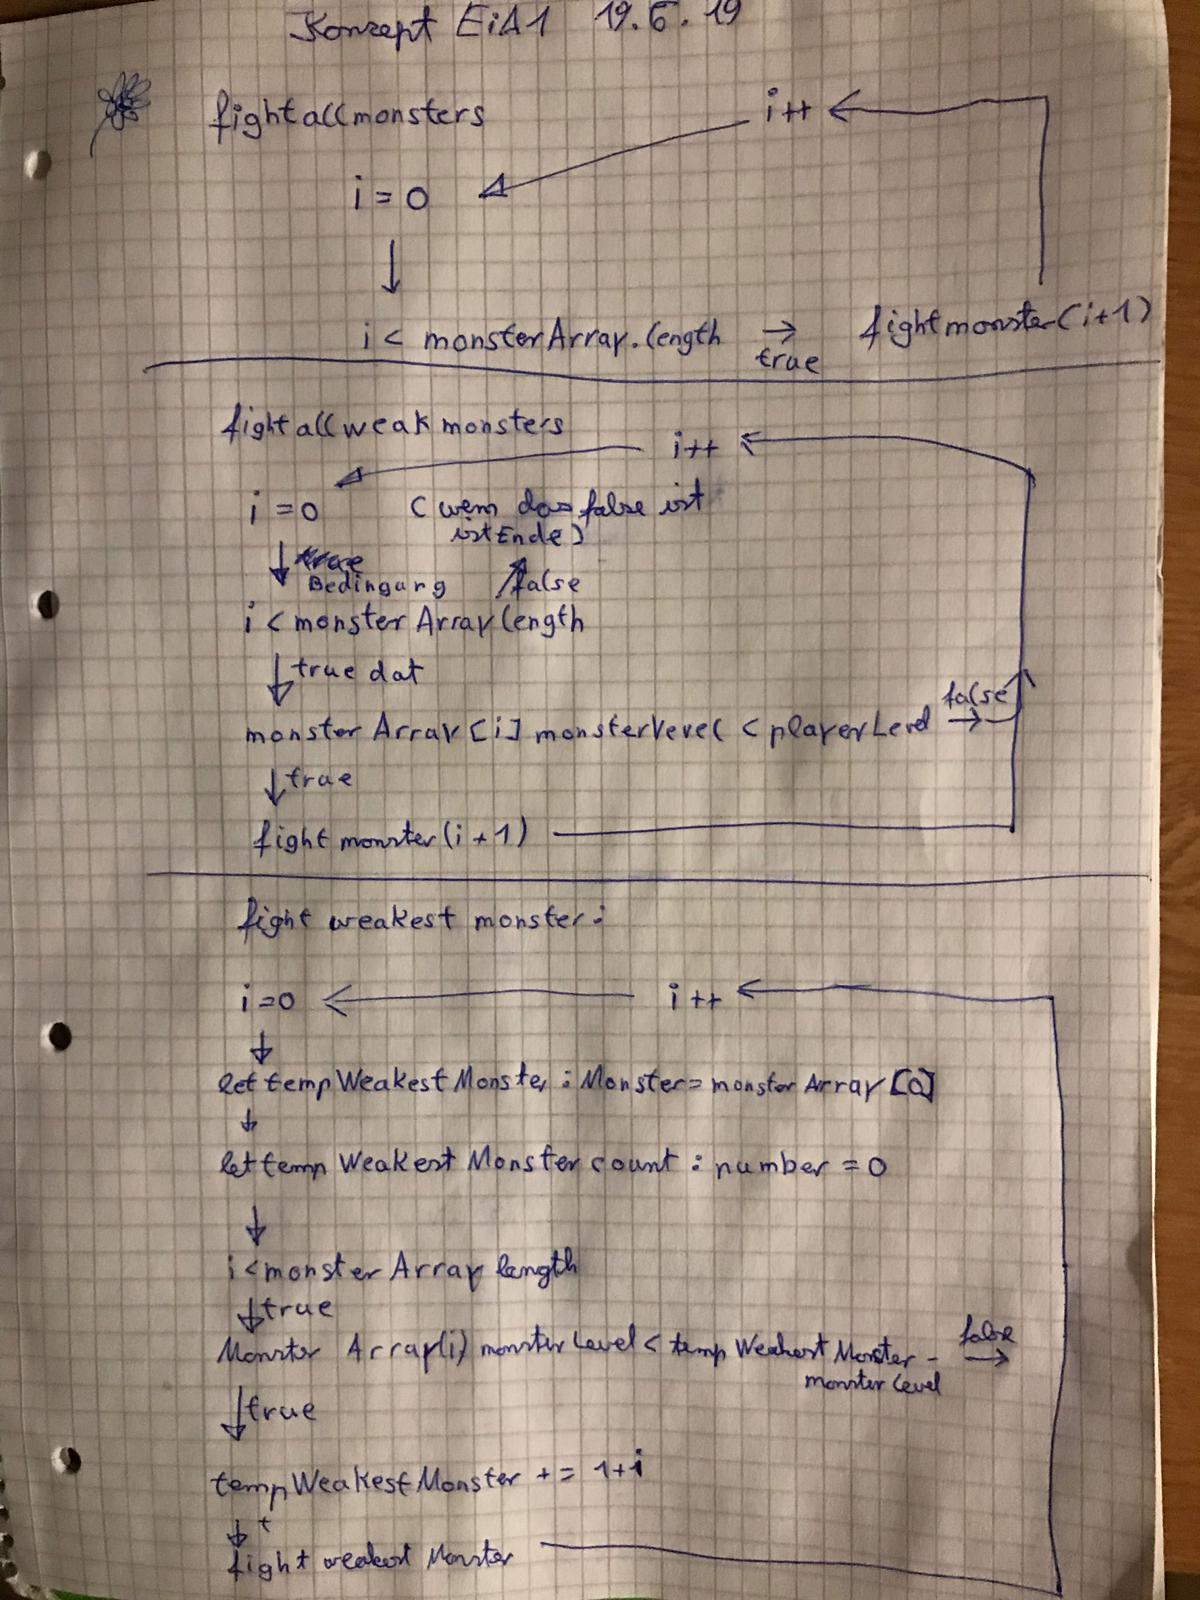 Konzept EiA1 19.6.19
fightallmonsters
i++
i = 0
i < monsterArray.length → true fightmonster(i+1)
fightallweakmonsters
i++
i = 0
(wenn das false ist
ist Ende)
Bedingung false
i < monsterArray length
true dat
monsterArray[i] monsterlevel < playerLevel → false
true
fight monster(i + 1)
fight weakest monster:
i=0 i++
let tempWeakestMonster : Monster = monsterArray[0]
let temp Weakest Monster count : number = 0
i < monster Array length
true
Monster Array(i) monsterLevel < temp Weakest Monster - false
monster level
true
tempWeakestMonster += 1+i
t
fight weakest Monster